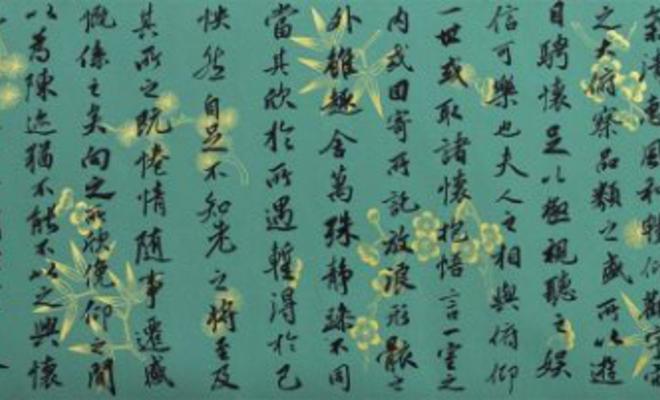 氣清惠風和暢仰觀宇宙
之大俯察品類之盛所以遊
目騁懷足以極視聽之娛
信可樂也夫人之相與俯仰
一世或取諸懷抱悟言一室之
内或因寄所託放浪形骸之
外雖趣舍萬殊靜躁不同
當其欣於所遇暫得於己
怏然自足不知老之將至及
其所之既倦情隨事遷感
慨係之矣向之所欣俛仰之間
以為陳迹猶不能不以之興懷